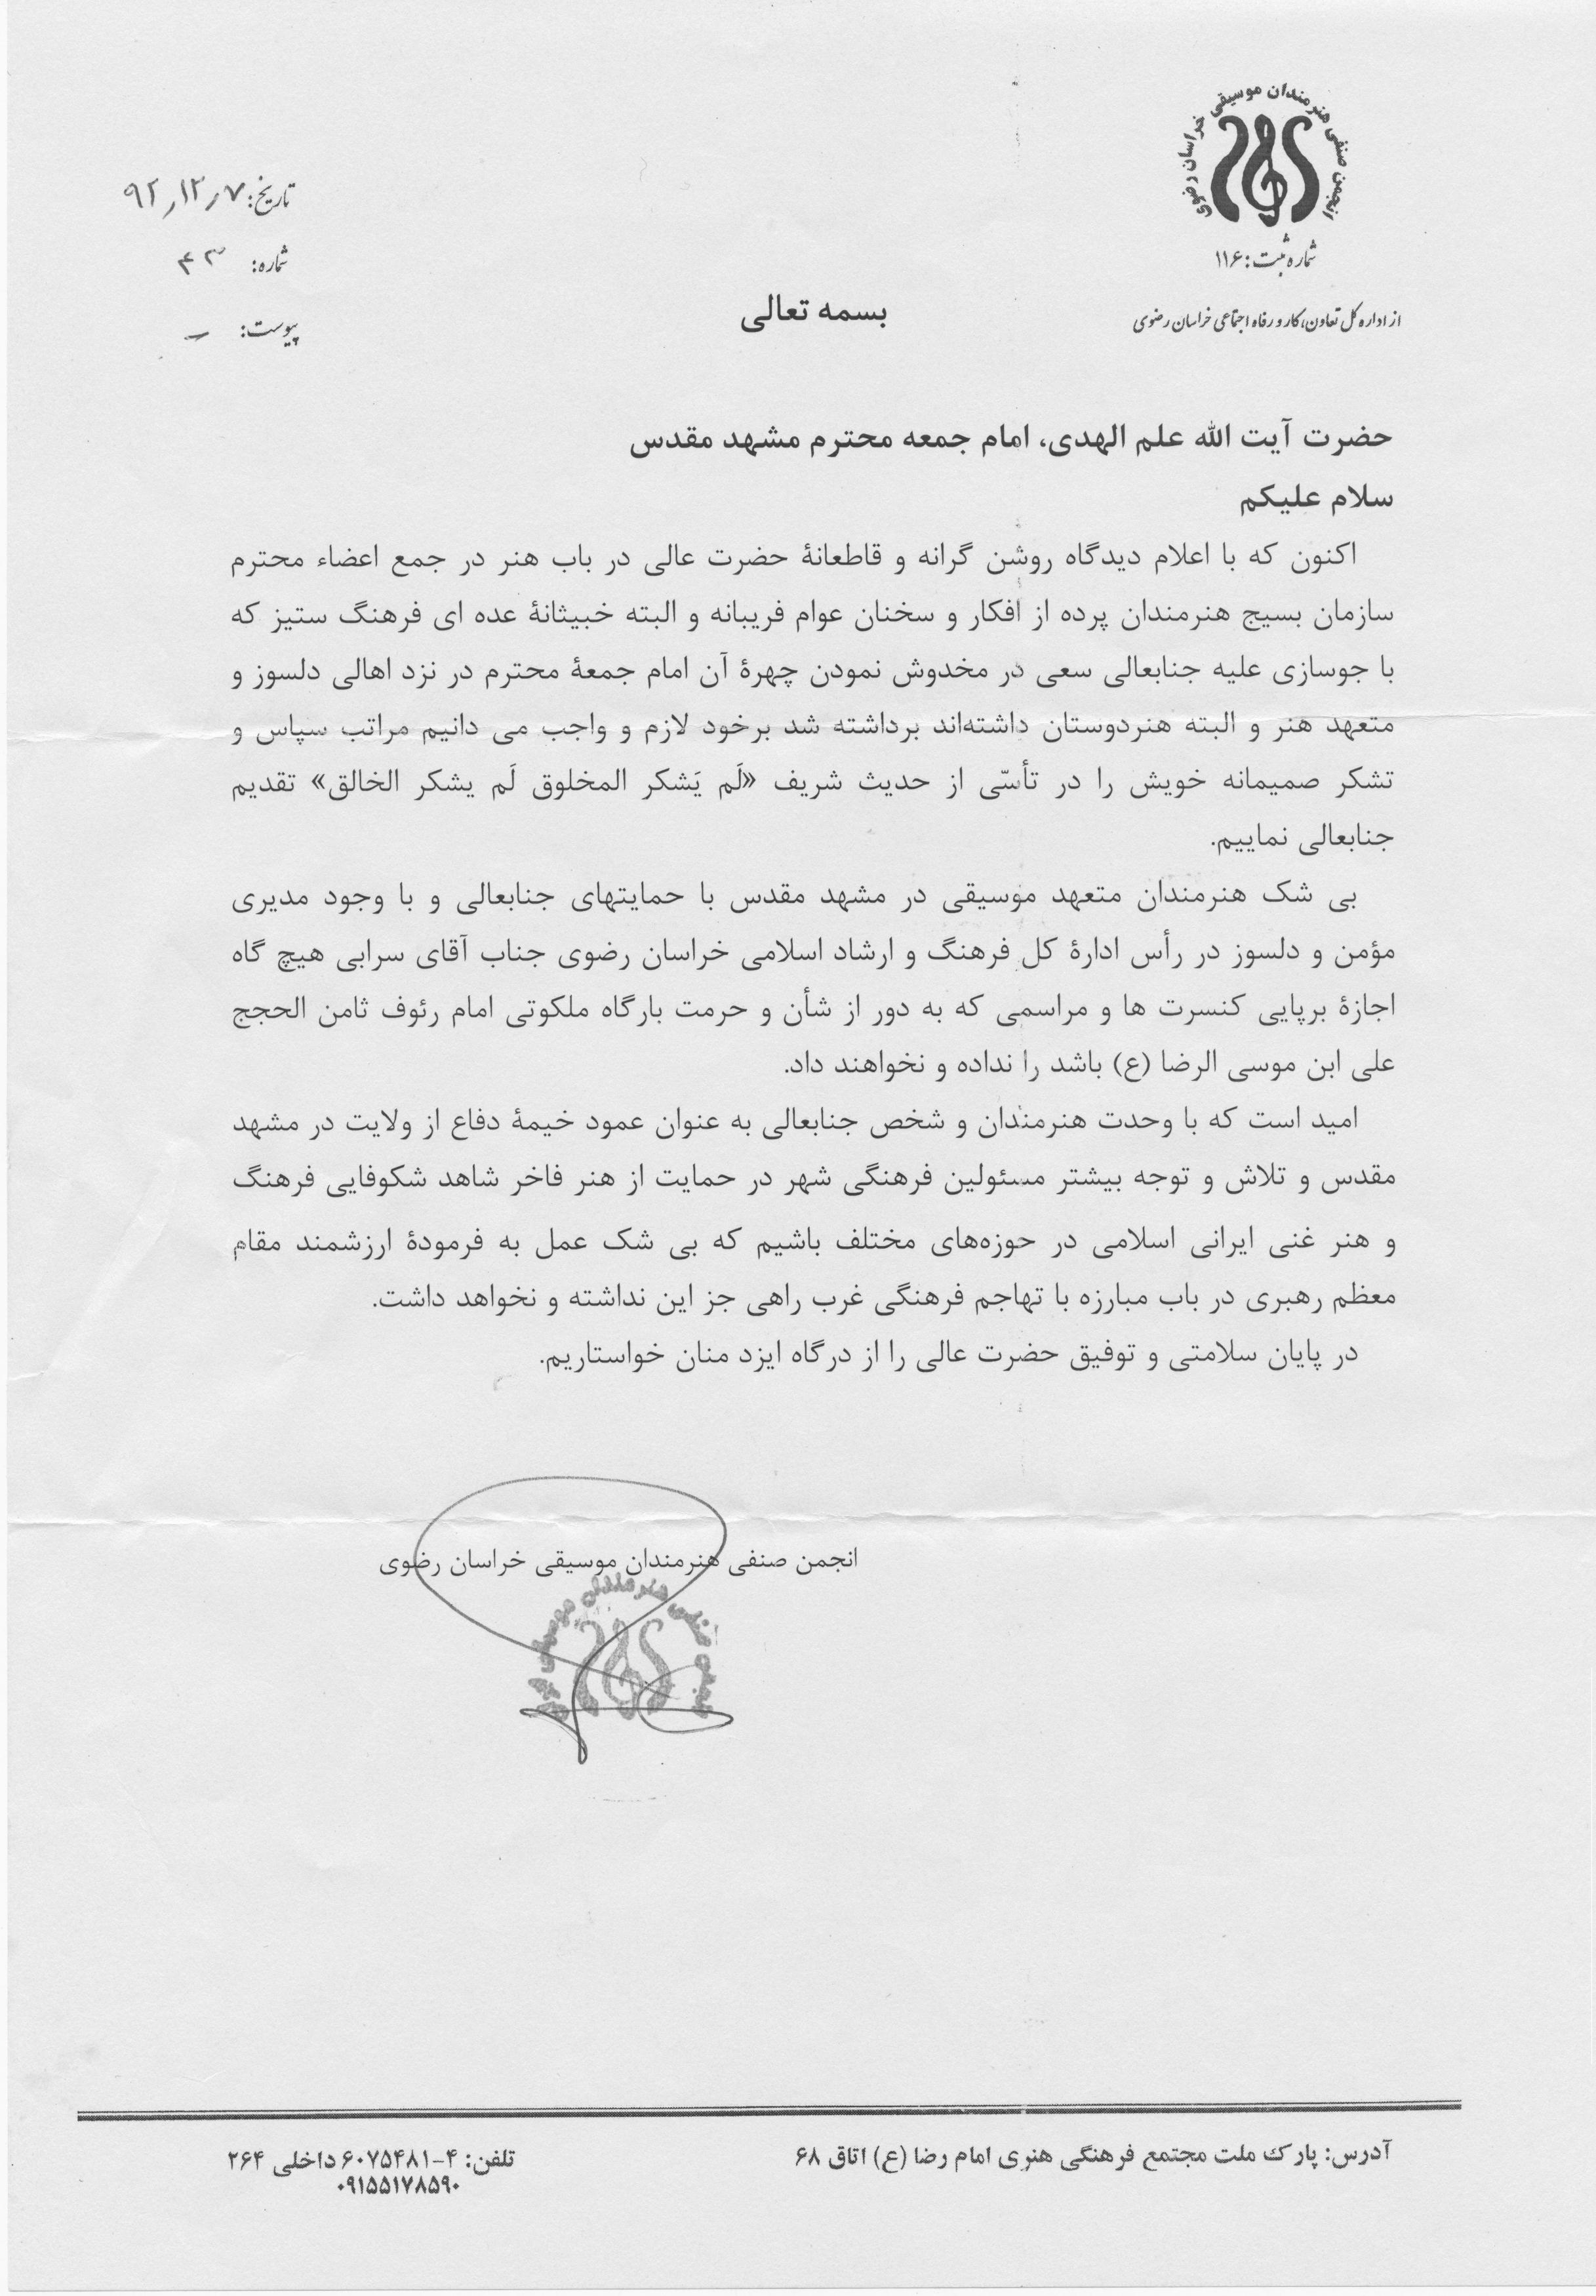 انجمن صنفی هنرمندان موسیقی خراسان رضوی
شماره ثبت: ۱۱۶
از اداره کل تعاون، کار و رفاه اجتماعی خراسان رضوی
تاریخ: ۹۲/۱۲/۷
شماره: ۴۳
پیوست: –
بسمه تعالی
حضرت آیت الله علم الهدی، امام جمعه محترم مشهد مقدس
سلام علیکم
اکنون که با اعلام دیدگاه روشن گرانه و قاطعانهٔ حضرت عالی در باب هنر در جمع اعضاء محترم
سازمان بسیج هنرمندان پرده از افکار و سخنان عوام فریبانه و البته خبیثانهٔ عده ای فرهنگ ستیز که
با جوسازی علیه جنابعالی سعی در مخدوش نمودن چهرهٔ آن امام جمعهٔ محترم در نزد اهالی دلسوز و
متعهد هنر و البته هنردوستان داشته‌اند برداشته شد برخود لازم و واجب می دانیم مراتب سپاس و
تشکر صمیمانه خویش را در تأسّی از حدیث شریف «لَم یَشکر المخلوق لَم یشکر الخالق» تقدیم
جنابعالی نماییم.
بی شک هنرمندان متعهد موسیقی در مشهد مقدس با حمایتهای جنابعالی و با وجود مدیری
مؤمن و دلسوز در رأس ادارهٔ کل فرهنگ و ارشاد اسلامی خراسان رضوی جناب آقای سرابی هیچ گاه
اجازهٔ برپایی کنسرت ها و مراسمی که به دور از شأن و حرمت بارگاه ملکوتی امام رئوف ثامن الحجج
علی ابن موسی الرضا (ع) باشد را نداده و نخواهند داد.
امید است که با وحدت هنرمندان و شخص جنابعالی به عنوان عمود خیمهٔ دفاع از ولایت در مشهد
مقدس و تلاش و توجه بیشتر مسئولین فرهنگی شهر در حمایت از هنر فاخر شاهد شکوفایی فرهنگ
و هنر غنی ایرانی اسلامی در حوزه‌های مختلف باشیم که بی شک عمل به فرمودهٔ ارزشمند مقام
معظم رهبری در باب مبارزه با تهاجم فرهنگی غرب راهی جز این نداشته و نخواهد داشت.
در پایان سلامتی و توفیق حضرت عالی را از درگاه ایزد منان خواستاریم.
انجمن صنفی هنرمندان موسیقی خراسان رضوی
انجمن صنفی هنرمندان موسیقی
آدرس: پارک ملت مجتمع فرهنگی هنری امام رضا (ع) اتاق ۶۸
تلفن: ۴-۶۰۷۵۴۸۱ داخلی ۲۶۴
۰۹۱۵۵۱۷۸۵۹۰